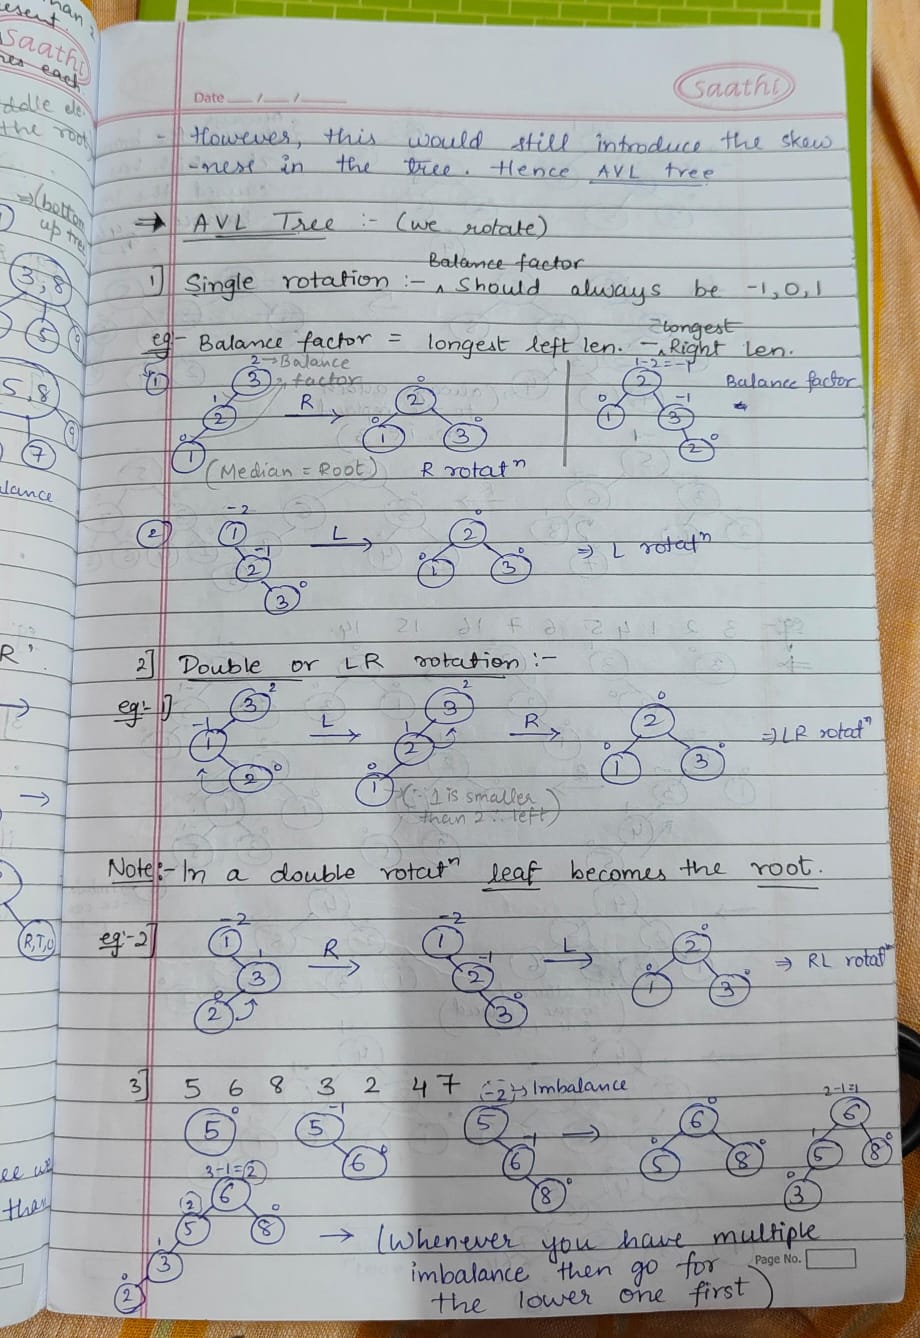 esent.
han 2
saathi
res each
ddle ele.
the root
⇒(bottom
up tree
3,8
5
9
5,8
9
7
lance
R'.
→
→
R,T,U
ee we
than
Date __/__/__
saathi
- However, this would still introduce the skew
-ness in the tree. Hence AVL tree
→ AVL Tree :- (we rotate)
Balance factor
1] Single rotation :- ^ Should always be -1,0,1
longest
eg- Balance factor = longest left len. -^ Right len.
① 3 2→Balance factor 2 1 1 0 R→ 2 0 1 0 3 0 | 1-2=-1 2 1 0 3 -1 2 0 Balance factor
(Median = Root) R rotatⁿ
② 1 -2 2 -1 3 0 L→ 2 0 1 0 3 0 ⇒ L rotatⁿ
2] Double or LR rotation :-
eg:- 1] 3 2 1 -1 2 0 L→ 3 2 2 1 1 0 R→ 2 0 1 0 3 0 ⇒LR rotatⁿ
(∵ 1 is smaller
than 2 ∴ left)
Note:- In a double rotatⁿ leaf becomes the root.
eg:-2] 1 -2 3 1 2 0 R→ 1 -2 2 -1 3 0 L→ 2 0 1 0 3 0 ⇒ RL rotatⁿ
3] 5 6 8 3 2 4 7 (-2)→ Imbalance
5 0 5 -1 6 0 5 6 -1 8 0 → 6 0 5 0 8 0 2-1=1 6 5 1 8 0 3 0
3-1=2 6 5 2 8 0 3 1 2 0
→ (Whenever you have multiple
imbalance then go for
the lower one first)
Page No.